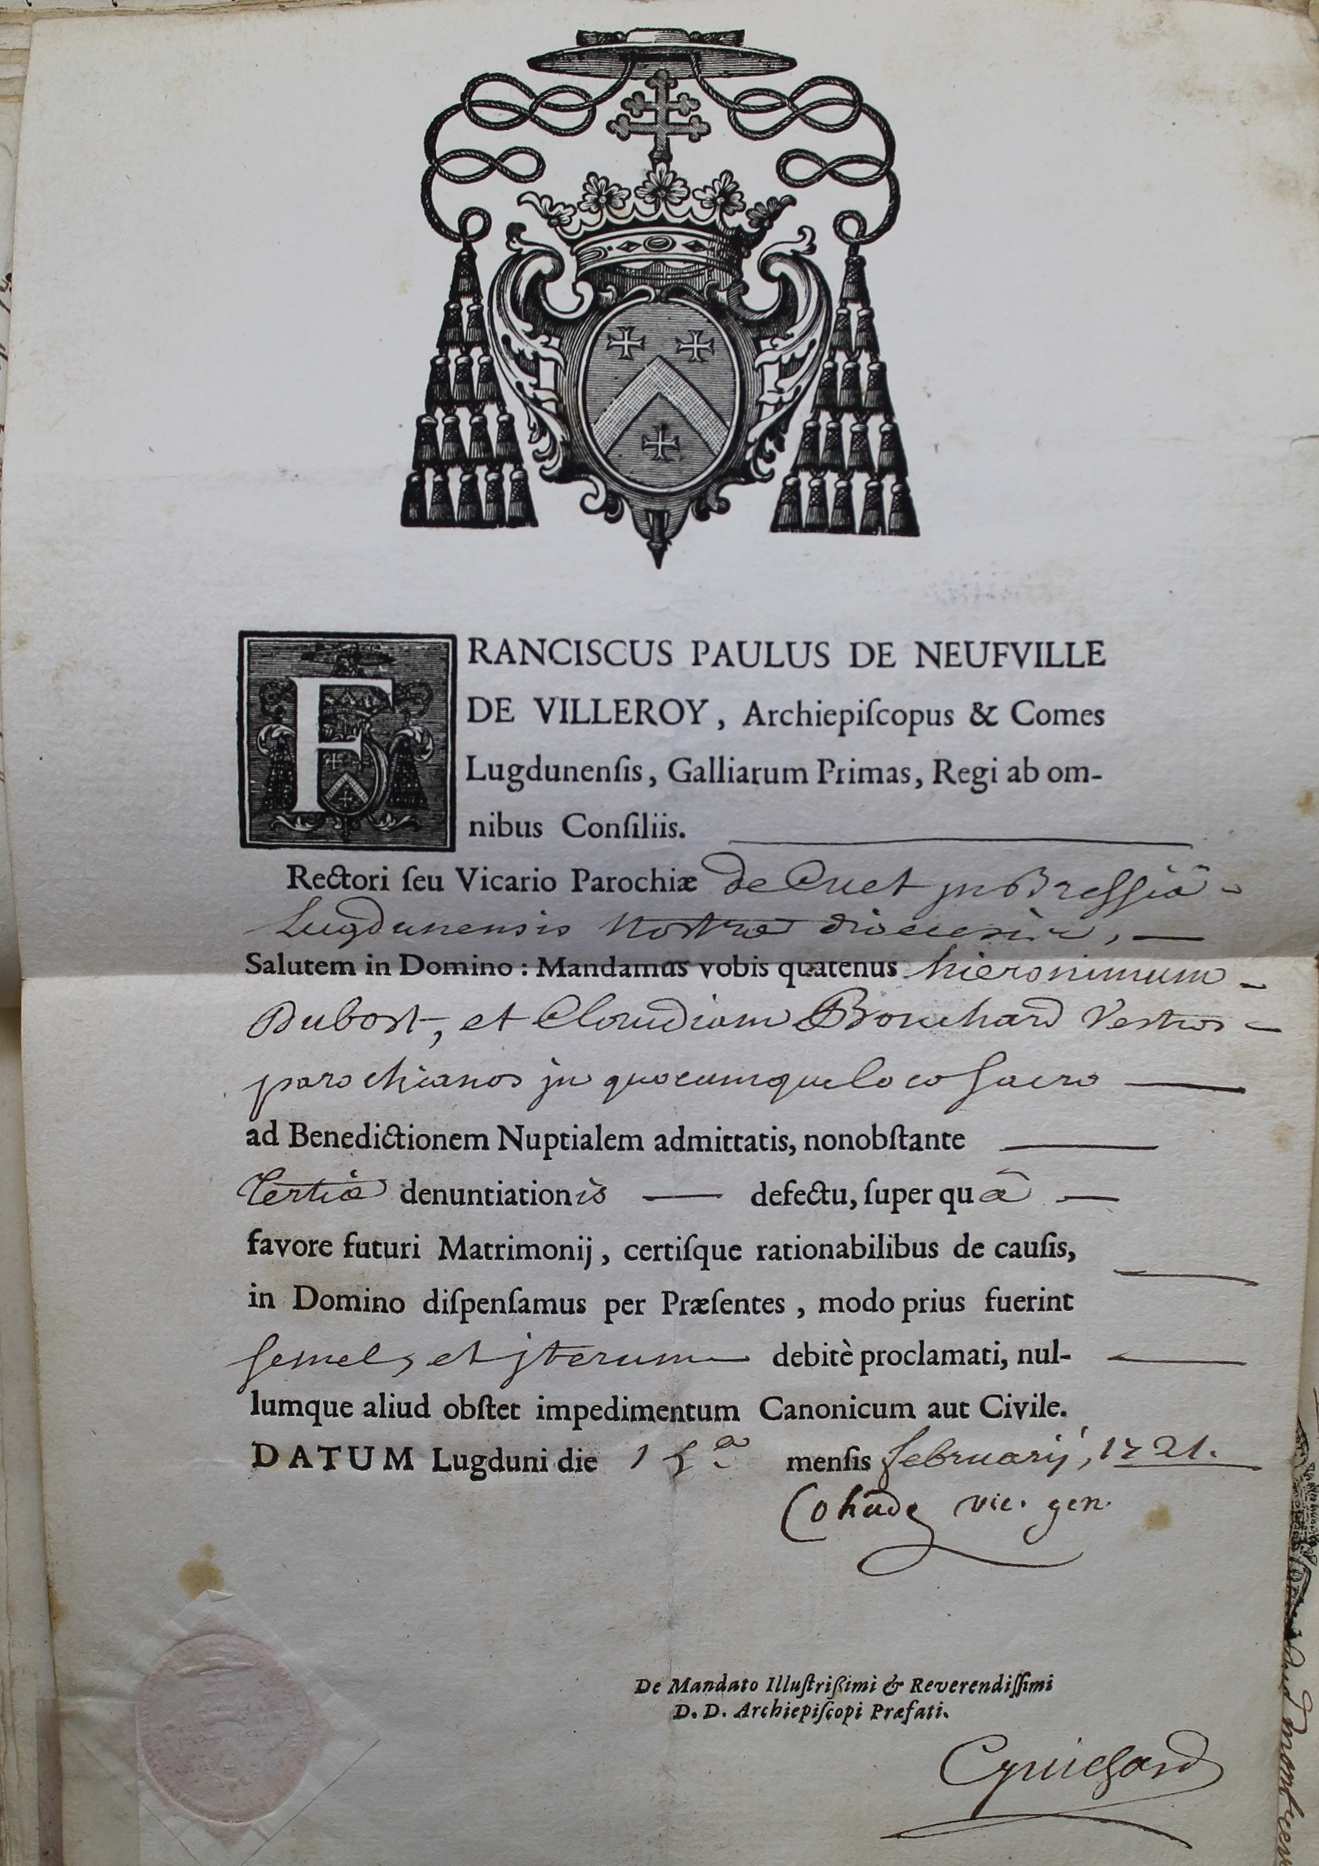 FRANCISCUS PAULUS DE NEUFVILLE
DE VILLEROY, Archiepiſcopus & Comes
Lugdunenſis, Galliarum Primas, Regi ab om-
nibus Conſiliis.
Rectori ſeu Vicario Parochiæ de Cuet jn Breſſiâ
Lugdunensis Nostræ diœcesis,
Salutem in Domino : Mandamus vobis quatenus hieronimum
Dubost, et Claudiam Bouchard Vestros
parochianos jn quocumque loco sacro
ad Benedictionem Nuptialem admittatis, nonobſtante
Tertiæ denuntiationis defectu, ſuper quâ
favore futuri Matrimonij, certiſque rationabilibus de cauſis,
in Domino diſpenſamus per Præſentes, modo prius fuerint
semel, et jterum debitè proclamati, nul-
lumque aliud obſtet impedimentum Canonicum aut Civile.
DATUM Lugduni die 15.a menſis februarij, 1721.
Cohade vic. gen.
De Mandato Illuſtriſſimi & Reverendiſſimi
D. D. Archiepiſcopi Præfati.